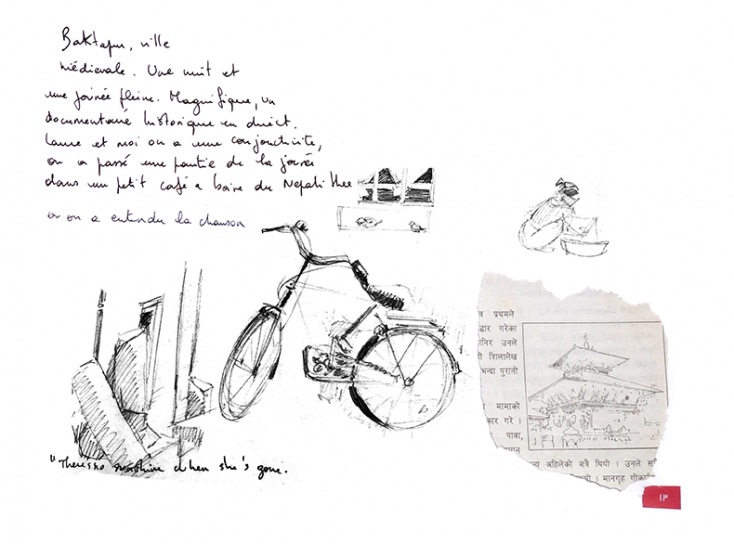 Baktapur, ville
médievale. Une nuit et
une journée pleine. Magnifique, un
documentaire historique en direct.
Laure et moi on a une conjonctivite,
on a passé une partie de la journée
dans un petit café a boire du Nepali thee
ou on a entendu la chanson
"There's no sunshine when she's gone.
प्रथमले
द्धार गरेका
उनले
शिलालेख
भन्दा पुरानो
मामाको
गरे ।
पाबा,
अहिलेको जत्रै थियो । उनले
। मानगृह
१३